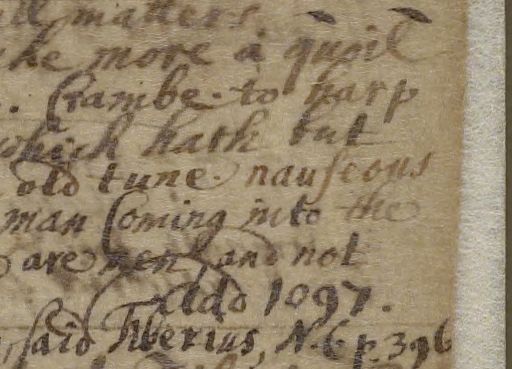 all matters.
he more a quoil
. Crambe. to harp
which hath but
old tune. nauseous
man Coming into the
are men and not
add 1097.
said Tiberius, N. 6 p. 396